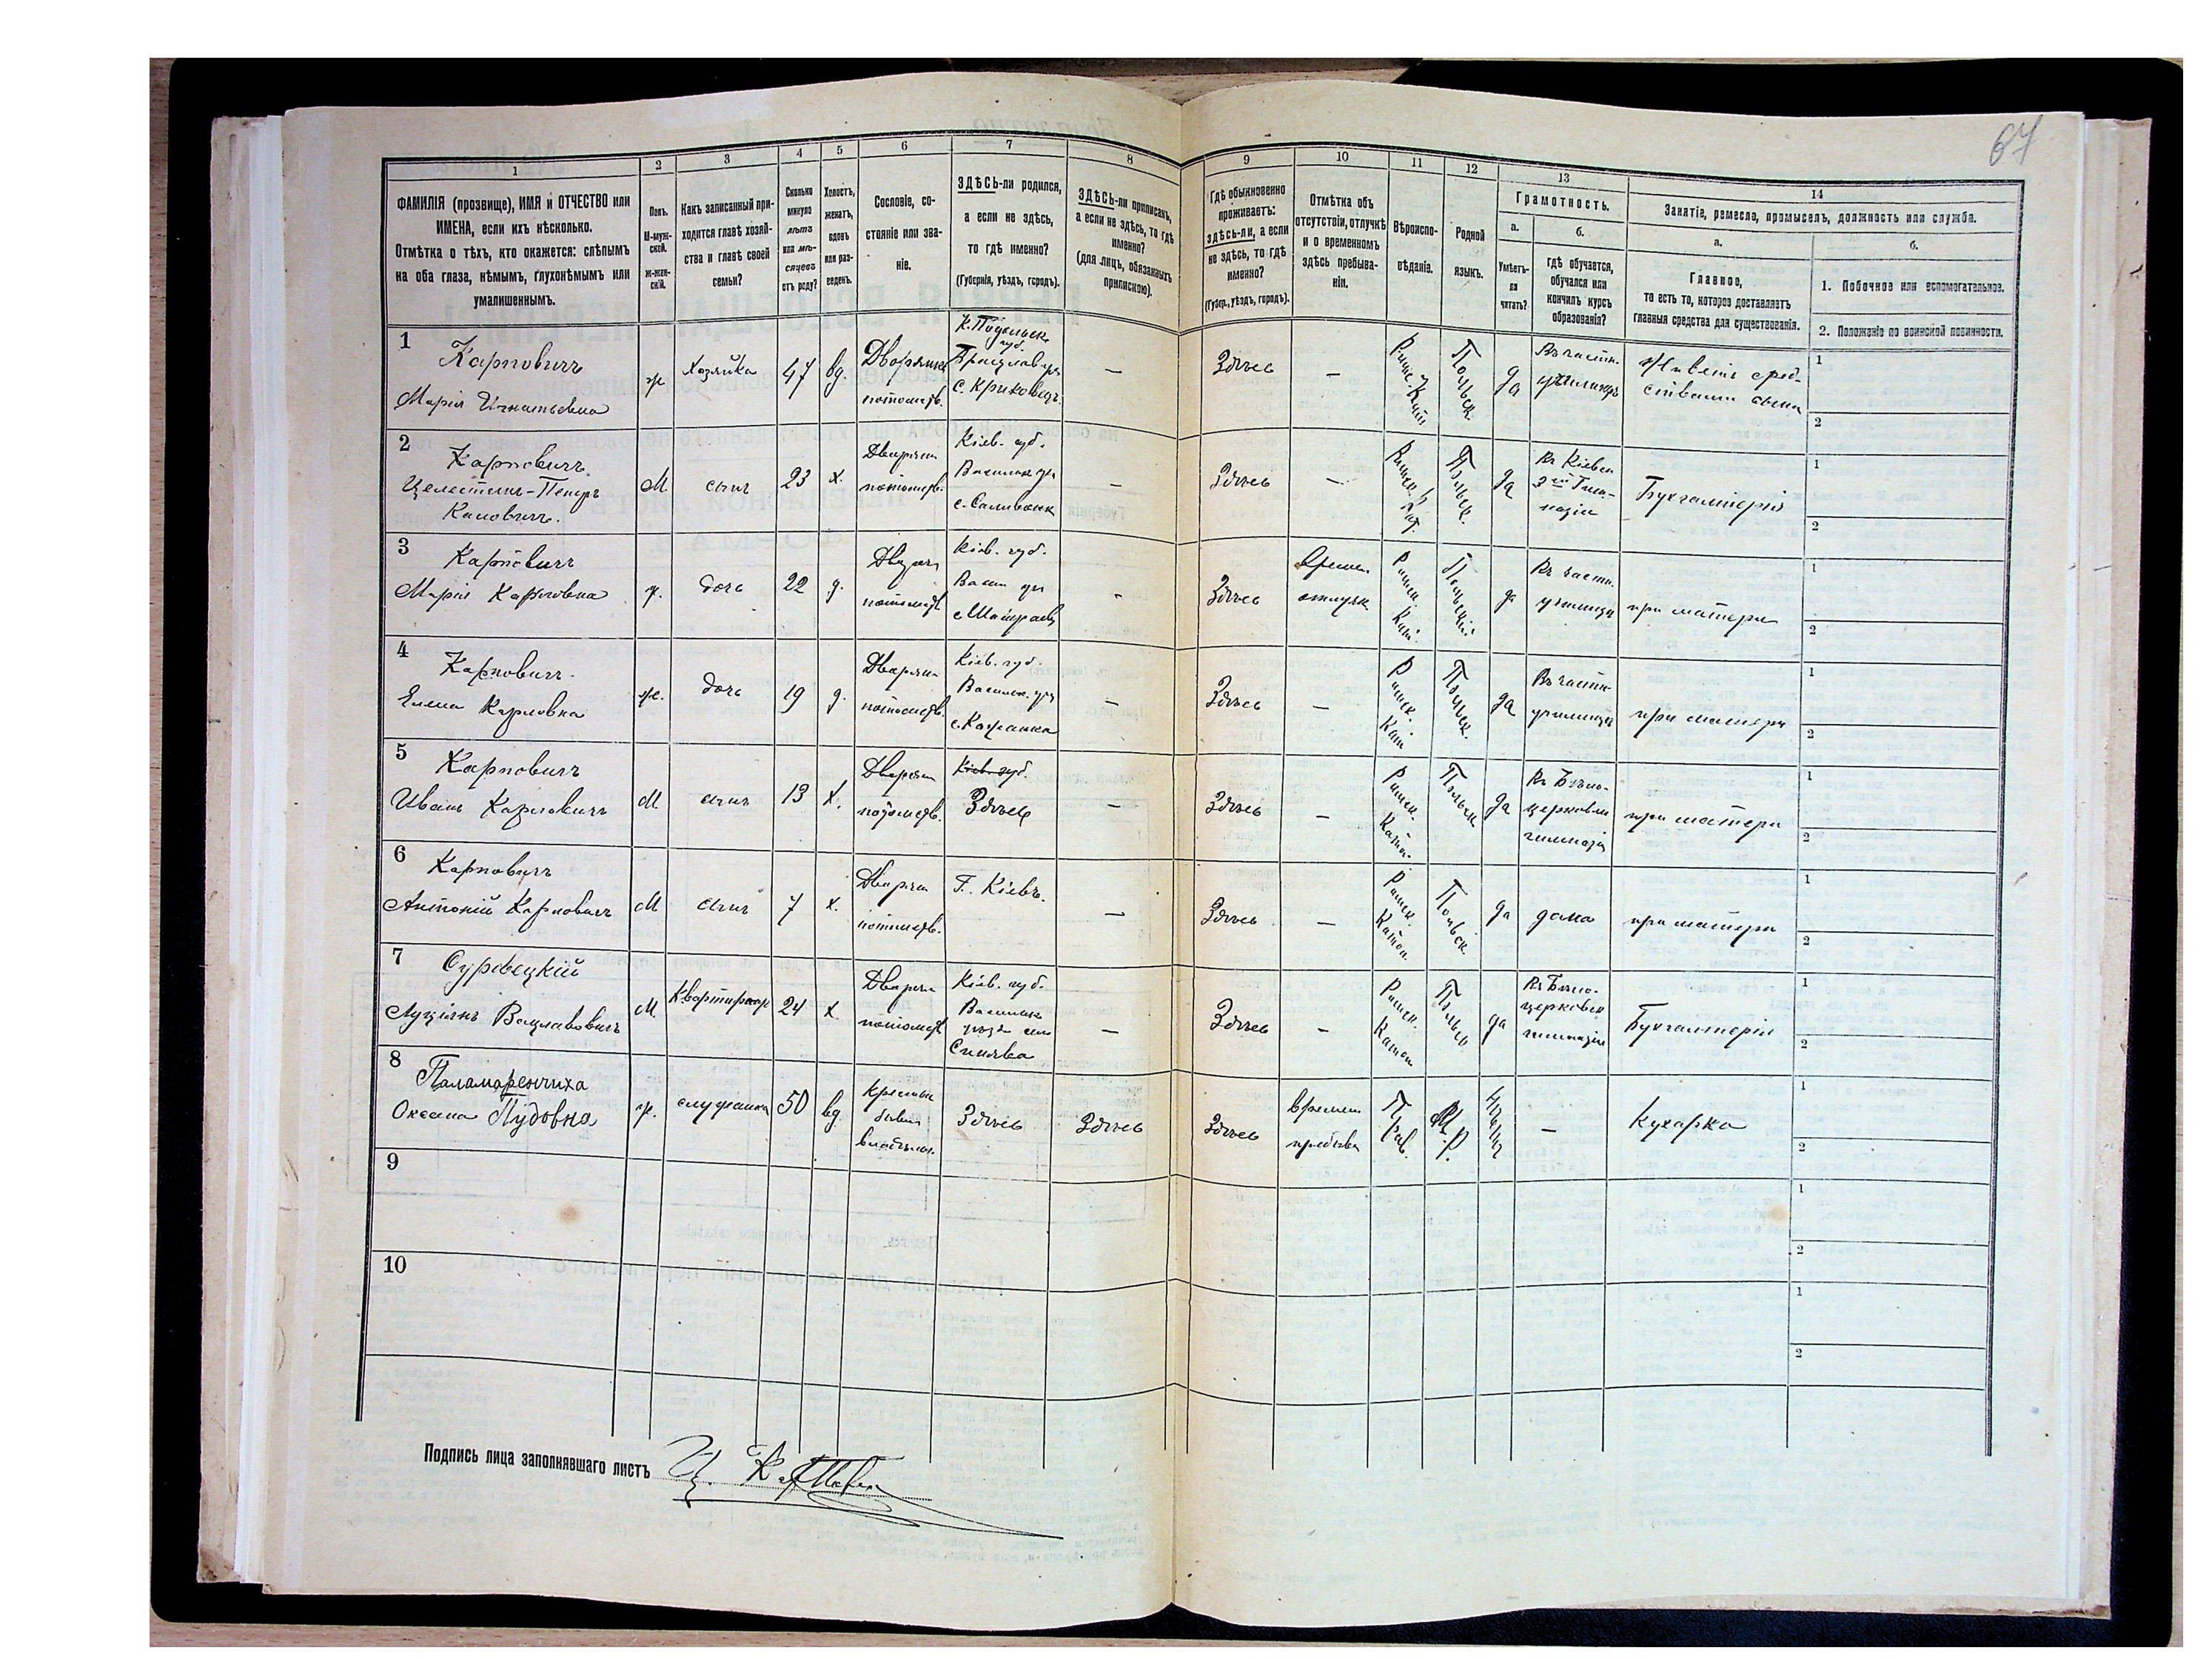 67
1
2
3
4
5
6
7
8
9
10
11
12
13
14
ФАМИЛІЯ (прозвище), ИМЯ и ОТЧЕСТВО или
ИМЕНА, если ихъ нѣсколько.
Отмѣтка о тѣхъ, кто окажется: слѣпымъ
на оба глаза, нѣмымъ, глухонѣмымъ или
умалишеннымъ.
Полъ.
М-муж-
ской.
ж-жен-
скій.
Какъ записанный при-
ходится главѣ хозяй-
ства и главѣ своей
семьи?
Сколько
минуло
лѣтъ
или мѣ-
сяцевъ
отъ роду?
Холостъ,
женатъ,
вдовъ
или раз-
веденъ.
Сословіе, со-
стояніе или зва-
ніе.
ЗДѢСЬ-ли родился,
а если не здѣсь,
то гдѣ именно?
(Губернія, уѣздъ, городъ).
ЗДѢСЬ-ли приписанъ,
а если не здѣсь, то гдѣ
именно?
(для лицъ, обязанныхъ
припискою).
Гдѣ обыкновенно
проживаетъ:
здѣсь-ли, а если
не здѣсь, то гдѣ
именно?
(Губер., уѣздъ, городъ).
Отмѣтка объ
отсутствіи, отлучкѣ
и о временномъ
здѣсь пребыва-
ніи.
Вѣроиспо-
вѣданіе.
Родной
языкъ.
Грамотность.
а.
Умѣетъ-
ли
читать?
б.
гдѣ обучается,
обучался или
кончилъ курсъ
образованія?
Занятіе, ремесло, промыселъ, должность или служба.
а.
Главное,
то есть то, которое доставляетъ
главныя средства для существованія.
б.
1. Побочное или вспомогательное.
2. Положеніе по воинской повинности.
1
Карповичъ
Марія Игнатьевна
ж.
Хозяйка
47
вд.
Дворянка
потомств.
К. Подольск.
губ.
Брацлав. уѣз
с. Криковецъ
—
Здѣсь
—
Римс. Кат
Польск.
да
Въ частн.
училищѣ
Живетъ сред-
ствами сына
1
2
2
Карповичъ
Целестинъ-Петръ
М
сынъ
23
х.
Дворянин
потомств.
Кіев. губ.
Васильк уѣз
с. Саливонк
—
Здѣсь
—
Польск.
да
Въ Кіевск
3ей Гим-
назіи
Бухгалтерія
1
2
3
Карповичъ
Марія Карловна
ж.
дочь
22
д.
потомств
Кіев. губ.
-
Здѣсь
Времен
отлучк
Римск Кат.
Польскій
да
Въ частн.
училищѣ
при матери
1
2
4
Карповичъ
Елена Карловна
ж.
дочь
19
д.
Дворян
потомств.
Кіев. губ.
Васильк. уѣз
с. Кожанка
—
Здѣсь
—
Римск. Кат
Польск.
да
Въ частн
училищѣ
при матери
1
2
5
Карповичъ
Иванъ Карловичъ
М
сынъ
13
х.
Дворян
потомств.
Кіев. губ.
Здѣсь
—
Здѣсь
—
Римск. Като.
Польск
да
Въ Бѣло-
церковск
гимназіи
при матери
1
2
6
Карповичъ
Антоній Карловичъ
М
сынъ
7
х.
Дворян
потомств.
Г. Кіевъ.
—
Здѣсь
—
Римск. Катол.
Польск
да
дома
при матери
1
2
7
Суровецкій
Луціянъ Вацлавовичъ
М
Квартирантъ
24
х.
Дворян
потомст
Кіев. губ.
Васильк
уѣзд село
Синява
—
Здѣсь
—
Римск. Катол
Польск
да
Въ Бѣло-
церковск
гимназіи
Бухгалтерія
1
2
8
Паламаренчиха
Оксана Пудовна
ж.
служанка
50
вд.
Крестьян
бывш
владѣльч.
Здѣсь
Здѣсь
Здѣсь
времен
пребыва
Прав.
М. Р.
—
Кухарка
1
2
9
1
2
10
1
2
Подпись лица заполнявшаго листъ